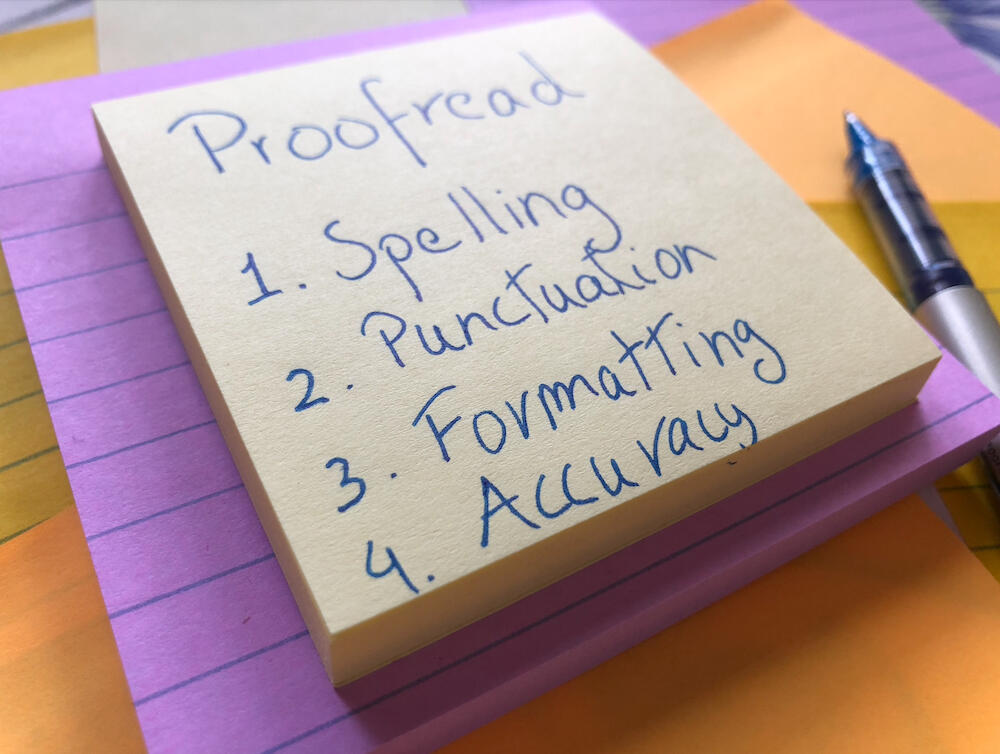 Proofread
1. Spelling
2. Punctuation
3. Formatting
4. Accuracy